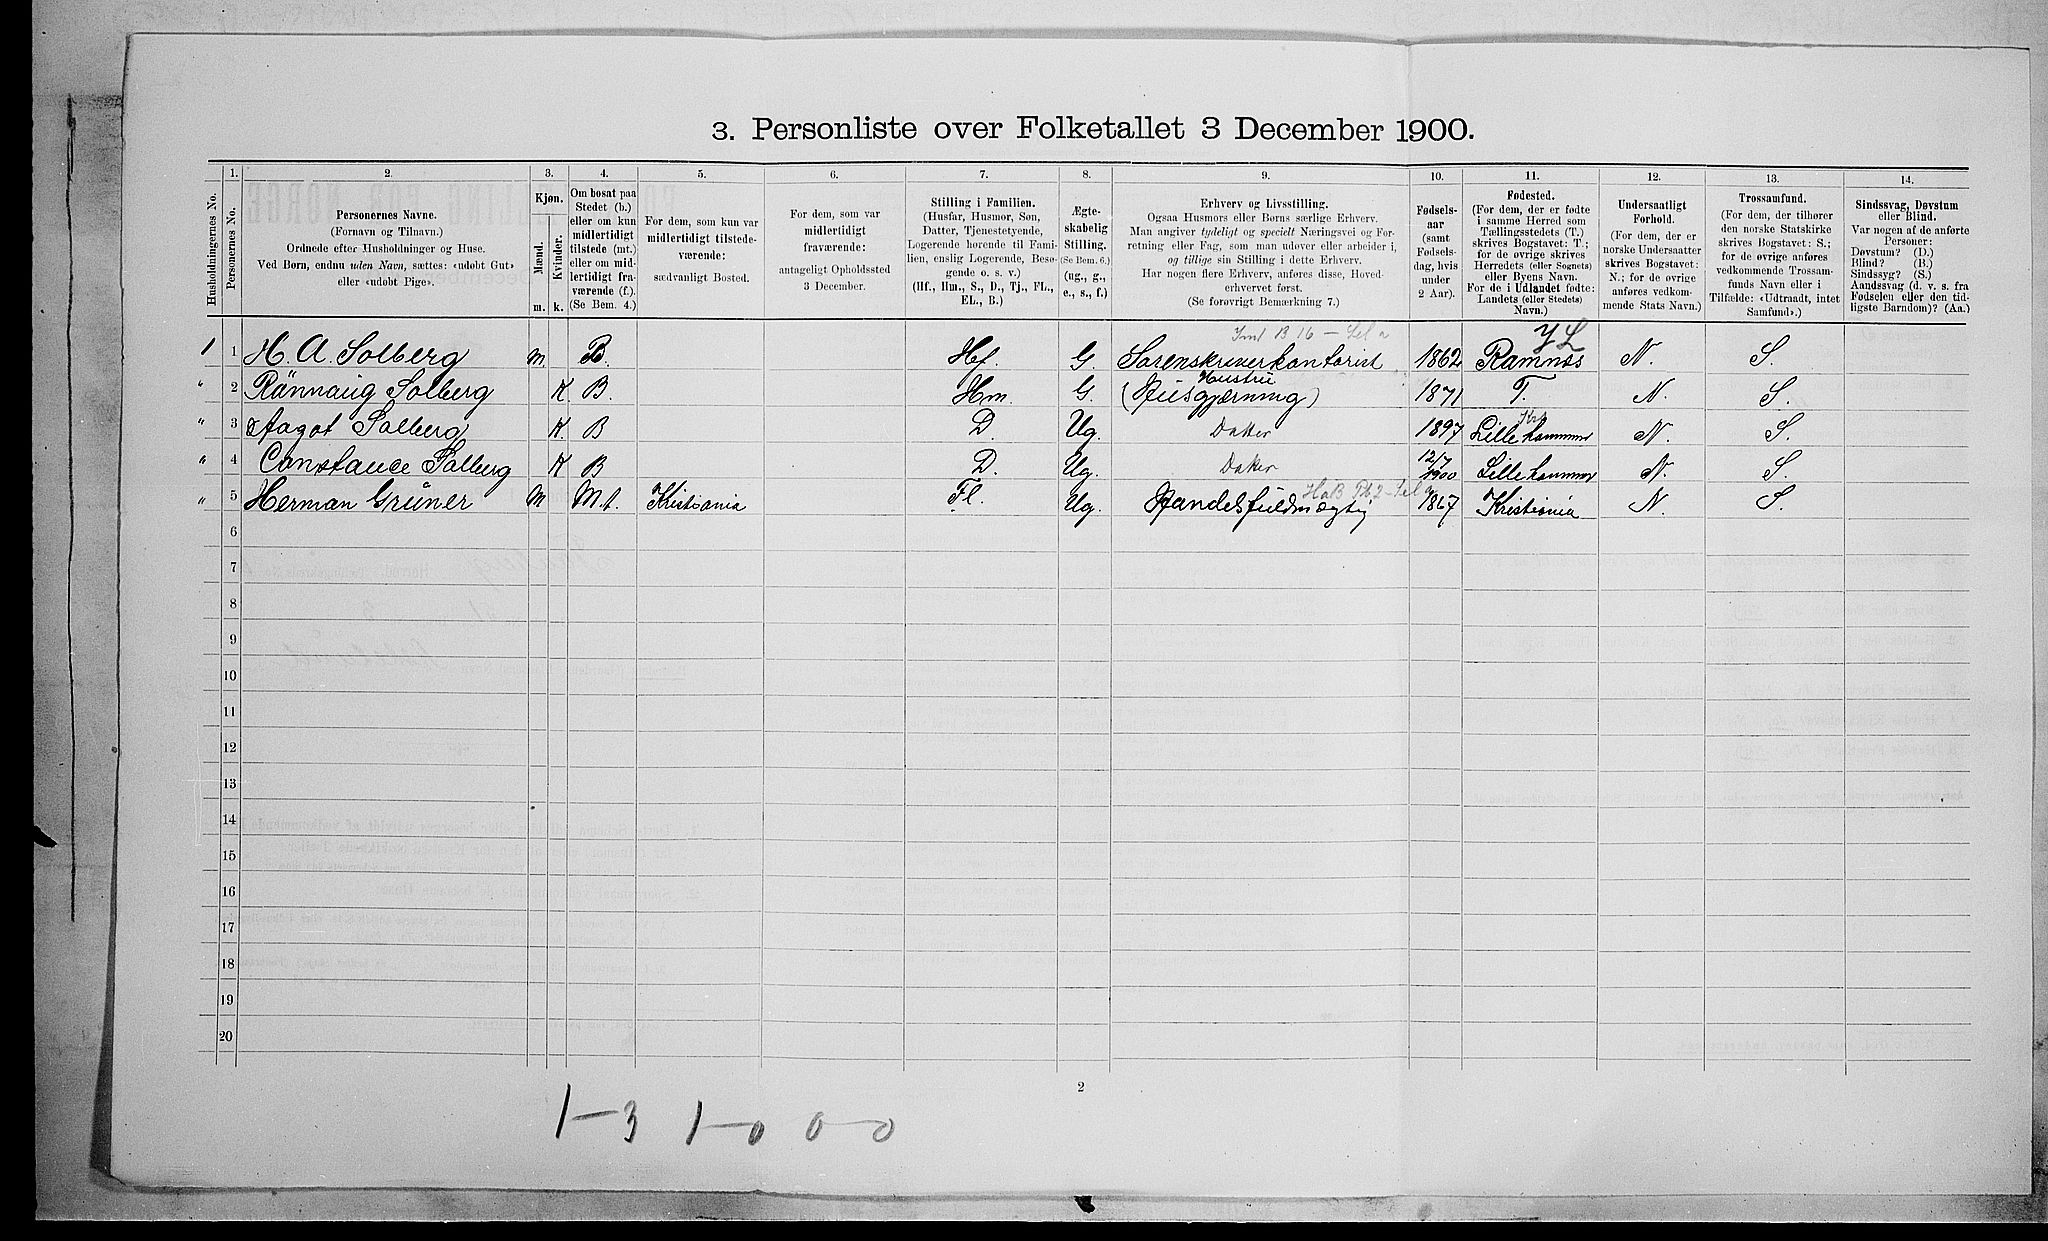 3. Personliste over Folketallet 3 December 1900.
Husholdningernes No.
1.
Personernes No.
2.
Personernes Navne.
(Fornavn og Tilnavn.)
Ordnede efter Husholdninger og Huse.
Ved Børn, endnu uden Navn, sættes: «udøbt Gut»
eller «udøbt Pige».
3.
Kjøn.
Mænd.
Kvinder.
m. k.
4.
Om bosat paa
Stedet (b.)
eller om kun
midlertidigt
tilstede (mt.)
eller om mid-
lertidigt fra-
værende (f.).
(Se Bem. 4.)
5.
For dem, som kun var
midlertidigt tilstede-
værende:
sædvanligt Bosted.
6.
For dem, som var
midlertidigt
fraværende:
antageligt Opholdssted
3 December.
7.
Stilling i Familien.
(Husfar, Husmor, Søn,
Datter, Tjenestetyende,
Logerende hørende til Fami-
lien, enslig Logerende, Besø-
gende o. s. v.)
(Hf., Hm., S., D., Tj., FL.,
EL., B.)
8.
Ægte-
skabelig
Stilling.
(Se Bem. 6.)
(ug., g.,
e., s., f.)
9.
Erhverv og Livsstilling.
Ogsaa Husmors eller Børns særlige Erhverv.
Man angiver tydeligt og specielt Næringsvei og For-
retning eller Fag, som man udøver eller arbeider i,
og tillige sin Stilling i dette Erhverv.
Har nogen flere Erhverv, anføres disse, Hoved-
erhvervet først.
(Se forøvrigt Bemærkning 7.)
10.
Fødsels-
aar
(samt
Fødsels-
dag, hvis
under
2 Aar).
11.
Fødested.
(For dem, der er fødte
i samme Herred som
Tællingsstedets (T.)
skrives Bogstavet: T.;
for de øvrige skrives
Herredets (eller Sognets)
eller Byens Navn.
For de i Udlandet fødte:
Landets (eller Stedets)
Navn.)
12.
Undersaatligt
Forhold.
(For dem, der er
norske Undersaatter
skrives Bogstavet:
N.; for de øvrige
anføres vedkom-
mende Stats Navn.)
13.
Trossamfund.
(For dem, der tilhører
den norske Statskirke
skrives Bogstavet: S.;
for de øvrige anføres
vedkommende Trossam-
funds Navn eller i
Tilfælde: «Udtraadt, intet
Samfund».)
14.
Sindssvag, Døvstum
eller Blind.
Var nogen af de anførte
Personer:
Døvstum? (D.)
Blind? (B.)
Sindssyg? (S.)
Aandssvag (d. v. s. fra
Fødselen eller den tid-
ligste Barndom)? (Aa.)
1 1 H. A. Solberg m. B. Hf. G. Sorenskriverkontorist 1862 Ramnæs N. S.
" 2 Rönnaug Solberg K. B. Hm. G. (Husgjærning) Hustru 1871 T. N. S.
" 3 Aagot Solberg K. B D. Ug. Datter 1897 Lillehammer N. S.
" 4 Constance Solberg K B D. Ug. Datter 12/7 1900 Lillehammer N. S.
" 5 Herman Grüner M M.t. Kristiania Fl. Ug. Handelsfuldmægtig 1867 Kristiania N. S.
6
7
8
9
10
11
12
13
14
15
16
17
18
19
20
2
1-3 1-0 0-0